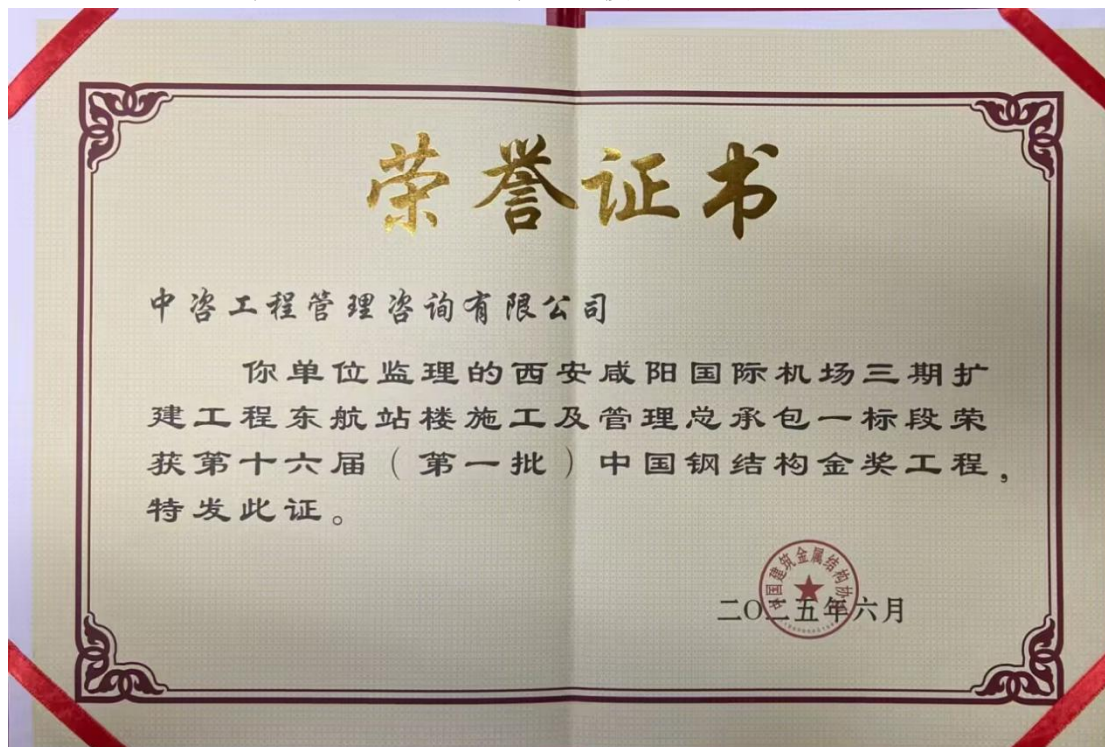 荣誉证书
中咨工程管理咨询有限公司
你单位监理的西安咸阳国际机场三期扩
建工程东航站楼施工及管理总承包一标段荣
获第十六届（第一批）中国钢结构金奖工程，
特发此证。
中国建筑金属结构协会
二〇二五年六月